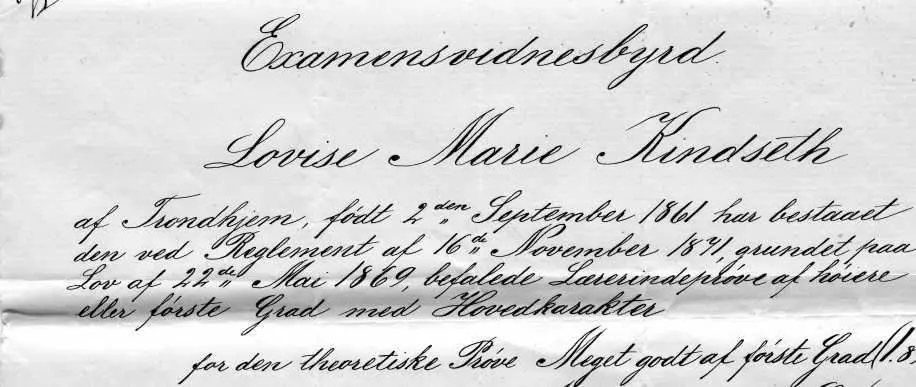 Examensvidnesbyrd.
Lovise Marie Kindseth
af Trondhjem, født 2den September 1861 har bestaaet
den ved Reglement af 16de November 1871, grundet paa
Lov af 22de Mai 1869, befalede Lærerindeprøve af høiere
eller første Grad med Hovedkarakter
for den theoretiske Prøve Meget godt af første Grad (1.8